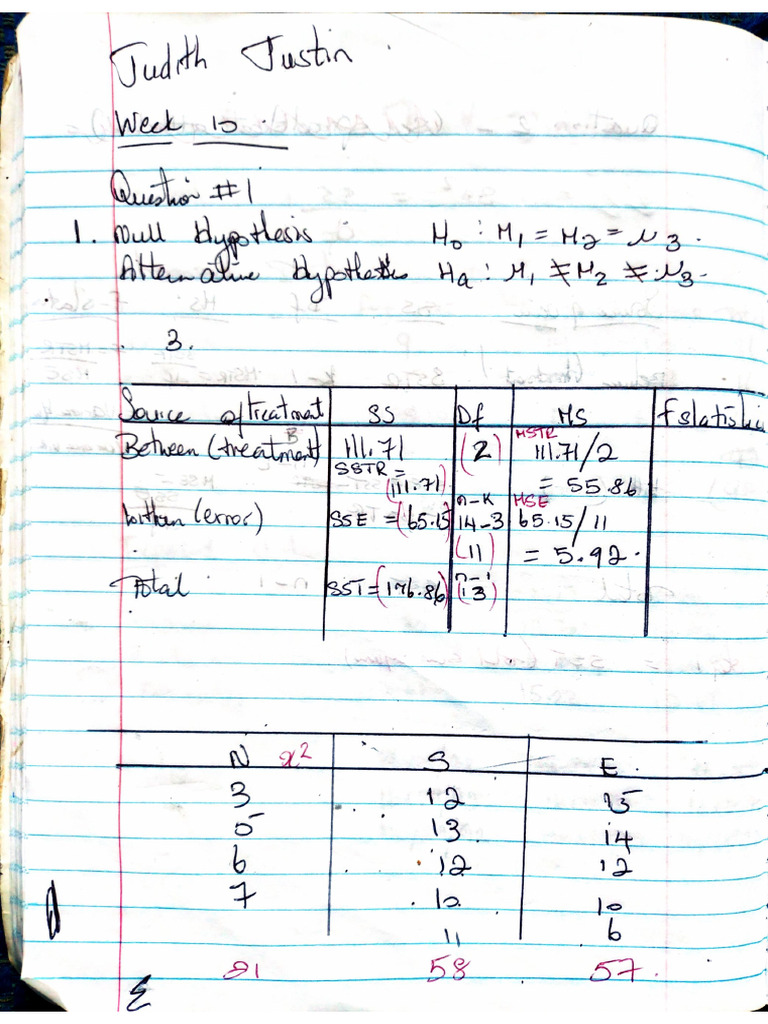 Judith Justin.
Week 10.
Question #1
1. Null Hypothesis : H₀ : M₁ = M₂ = µ₃.
Alternative Hypothesis Hₐ : M₁ ≠ M₂ ≠ µ₃.
3.
Source of Treatment SS Df MS F statistic
Between (treatment) B 111.71 (2) MSTR 111.71/2
SSTR = (111.71) = 55.86
Within (error) SSE = (65.15) n-k 14-3 MSE 65.15/11
(11) = 5.92.
Total SST = (176.86) n-1 (13)
N x² S E
3 12 15
5 13 14
6 12 12
7 10 10
11 6
Σ 21 58 57.